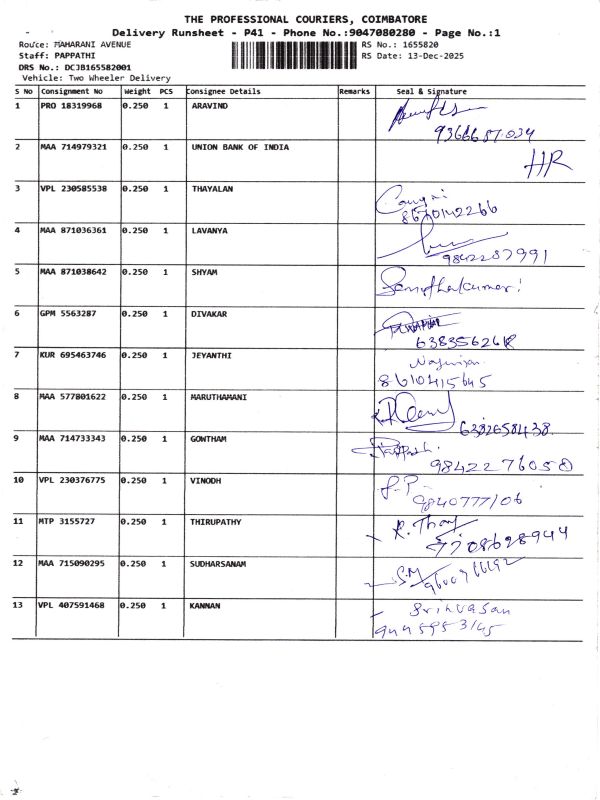 THE PROFESSIONAL COURIERS, COIMBATORE
Delivery Runsheet - P41 - Phone No.:9047080280 - Page No.:1
Route: MAHARANI AVENUE RS No.: 1655820
Staff: PAPPATHI RS Date: 13-Dec-2025
DRS No.: DCJB165582001
Vehicle: Two Wheeler Delivery
S No Consignment No Weight PCS Consignee Details Remarks Seal & Signature
1 PRO 18319968 0.250 1 ARAVIND
9366687034
2 MAA 714979321 0.250 1 UNION BANK OF INDIA
HR
3 VPL 230585538 0.250 1 THAYALAN
8670142266
4 MAA 871036361 0.250 1 LAVANYA
9842287991
5 MAA 871038642 0.250 1 SHYAM
6 GPM 5563287 0.250 1 DIVAKAR
7 KUR 695463746 0.250 1 JEYANTHI
8610415645
8 MAA 577801622 0.250 1 MARUTHAMANI
6382658438
9 MAA 714733343 0.250 1 GOWTHAM
9842276050
10 VPL 230376775 0.250 1 VINODH
9840777106
11 MTP 3155727 0.250 1 THIRUPATHY
12 MAA 715090295 0.250 1 SUDHARSANAM
S.M
13 VPL 407591468 0.250 1 KANNAN
Srinvasan
9445953145